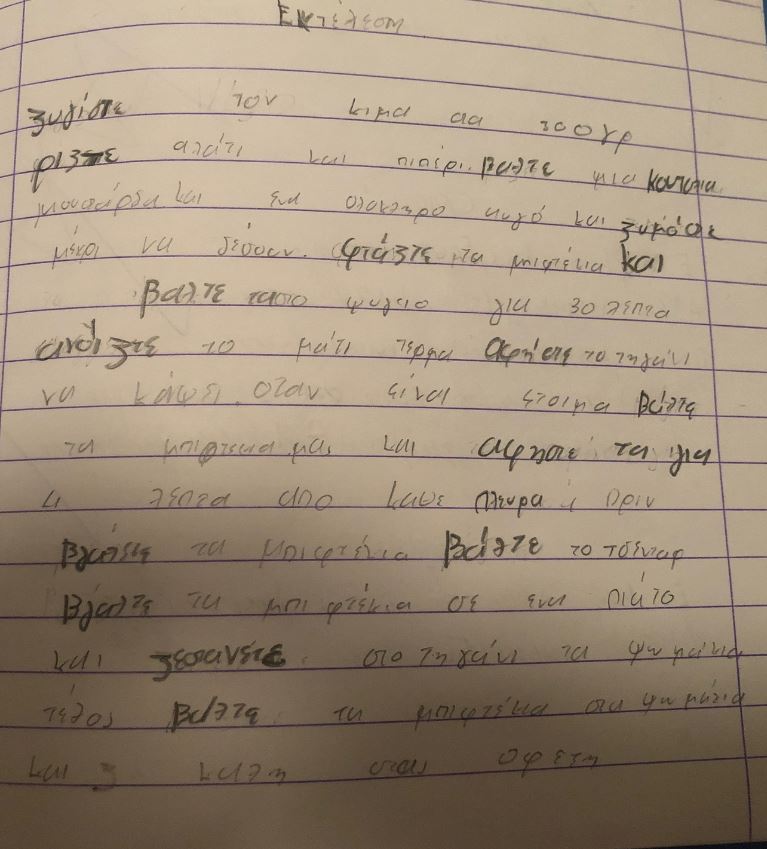 Εκτέλεση
ζυγίστε τον κιμα αα 300γρ
ριξτε αλάτι και πιπέρι. βαλτε μια κουταλια
μουστάρδα και ενα ολοκληρο αυγό και ζυμόστε
μέχρι να δέσουν. Φτάξτε τα μπιφτέκια και
βαλτε τα στο ψυγειο για 30 λεπτα
ανοίξτε το μάτι τέρμα αφήστε το τηγάνι
να κάψει. οταν είναι έτοιμα βάλτε
τα μπιφτεκια μας και αφηστε τα για
4 λέπτα απο καθε πλευρα ι Πριν
βγαλετε τα μπιφτέκια βάλτε το τσένταρ
βγαλτε τα μπιφτέκια σε ενα πιάτο
και ζεσανετε στο τηγάνι τα ψωμάκια
τέλος βάλτε τα μπιφτέκια στα ψωμάκια
και καλη σας ορεξη